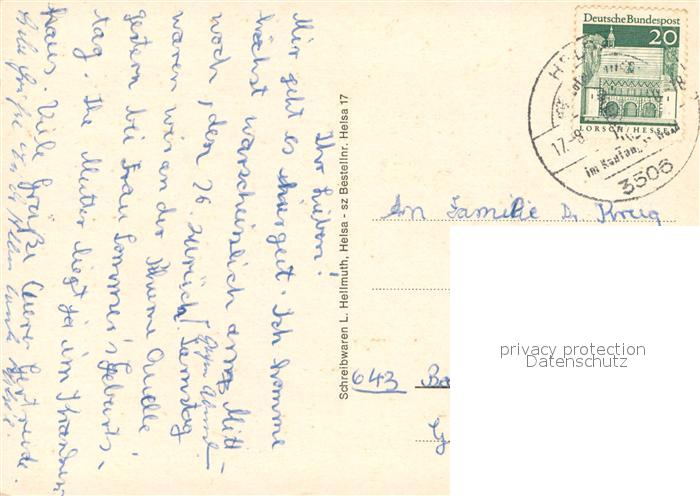 Ihr Lieben!
Mir geht es sehr gut. Ich komme
höchst warscheinlich am Mitt-
woch, den 26. zurück! Gegen Abend
waren wir an der Rhume Quelle Samstag
gestern bei Frau Sommer's Geburts-
tag. Ihre Mutter liegt ja im Kranken-
haus. Viele Grüße Eure Gertrude.
Schreibwaren L. Hellmuth, Helsa - sz Bestellnr. Helsa 17
Deutsche Bundespost
20
LORSCH/HESSEN
HELSA
17.-8
im Kaufunger Wald
3506
An Familie Dr. Krug
643 Ba
privacy protection
Datenschutz